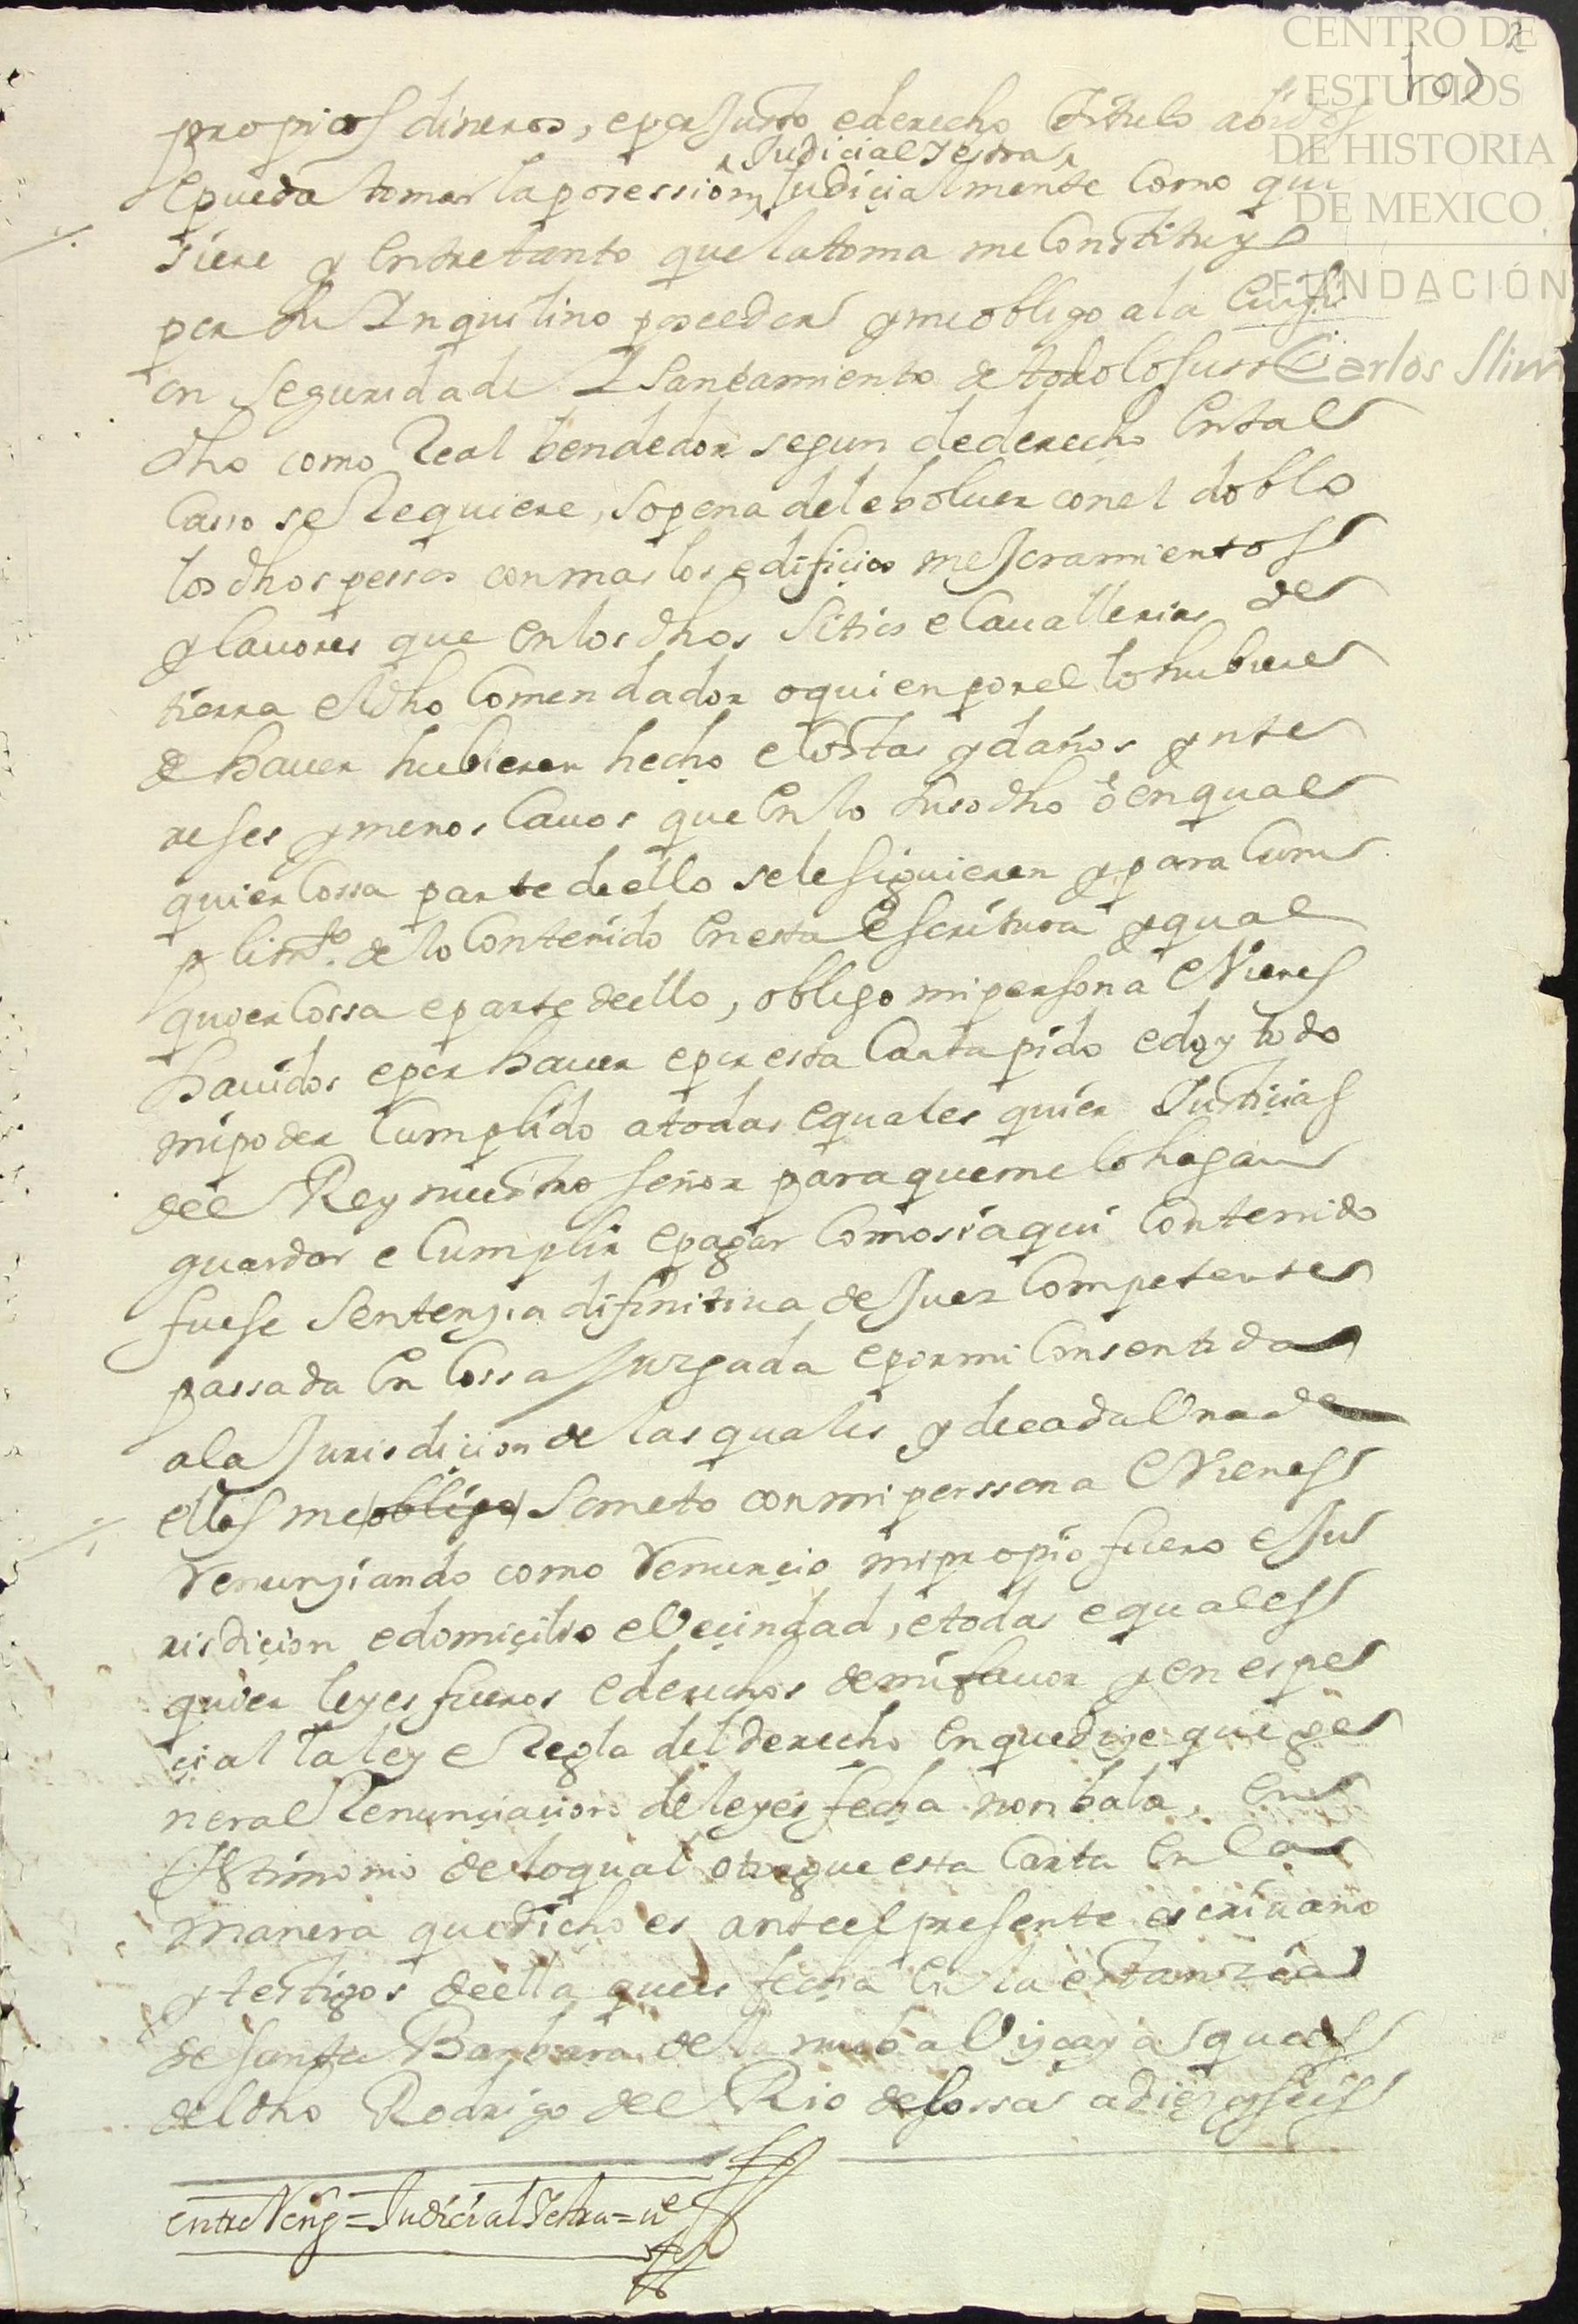 CENTRO DE
ESTUDIOS
DE HISTORIA
DE MEXICO
FUNDACIÓN
Carlos Slim
2
propios dineros, e por Justo e derecho titulo abidos
Judicial I estra
e pueda tomar la posession Judicialmente Como qui
siere y Entretanto que la toma me Constituyo
por su Inquilino posedor y me obligo a la Euisi
on seguridad e I Saneamiento de todo lo suso
dho como Real bendedor segun de derecho En tal
Casso se Requiere, so pena de le boluer con el doblo
los dhos pessos con mas los edifiçios meJoramientos
y lauores que en los dhos Sitios e Cauallerias de
tierra el dho Comendador o quien por el lo hubiere
de hauer hubieren hecho e Costas y daños ynte
reses y menos Cauos que En lo suso dho o en qual
quier Cossa parte de ello se le siguieren y para Cum
plimto. de lo Contenido En esta Escritura y qual
quier Cossa e parte de ello, obligo mi persona e Vienes
hauidos e por hauer e por esta Carta pido e doy todo
mi poder Cumplido a todas e quales quier Justiçias
del Rey nuestro señor para que me lo hagan
guardar e Cumplir e pagar Como si aqui Contenido
fuese Sentençia difinitiua de Juez Competente
passada En Cossa Juzgada e por mi Consentida
a la Jurisdicion de las quales y de cada Una de
ellas me obligo Someto con mi perssona e Vienes
Renunçiando como Renunçio mi propio fuero e Ju
risdiçion e domiçilio e Veçindad, e todas e quales
quier leyes fueros e derechos de mi fauor y en espe
çial la ley e Regla del derecho En que dize que ge
neral Renunçiaçion de leyes fecha non bala, En
testimonio de lo qual otorgue esta Carta En la
manera que dicho es ante el presente escriuano
y testigos de ella que es fecha En la estanzia
de santa Barbara de la nueba Viscaya que es
del dho Rodrigo del Rio de lossa a diez y seis
entre Reng = Judicial I estra = ue